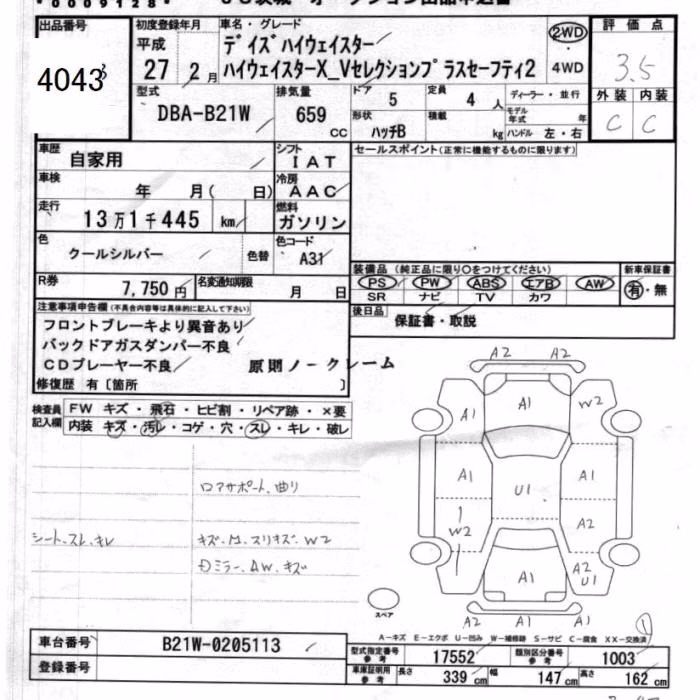 *0009128*
出品番号
4043
初度登録年月
平成
27 2月
車名・グレード
デイズハイウェイスター
ハイウェイスターX_Vセレクションプラスセーフティ2
2WD
4WD
評価点
3.5
外装 内装
C C
型式
DBA-B21W
排気量
659
CC
ドア
5
定員
4 人
形状
ハッチB
積載
kg
ディーラー・並行
モデル年式 年
ハンドル 左・右
車歴
自家用
シフト
IAT
セールスポイント(正常に機能するものに限ります)
車検
年 月( 日)
冷房
AAC
走行
13万1千445 km
燃料
ガソリン
色
クールシルバー
色替
色コード
A31
装備品(純正品に限り○をつけてください)
新車保証書
PS PW ABS エアB AW
有・無
SR ナビ TV カワ
R券
7,750円
名変通知期限
月 日
後日品
保証書・取説
注意事項申告欄(不具合内容等は具体的に記入して下さい)
フロントブレーキより異音あり
バックドアガスダンパー不良
CDプレーヤー不良
原則ノークレーム
修復歴 有〔箇所 〕
検査員記入欄
FW キズ・飛石・ヒビ割・リペア跡・×要
内装 キズ・汚レ・コゲ・穴・スレ・キレ・破レ
ロアサポート、曲り
シート、スレ、キレ
キズ・凹・スリキズ・W2
ミラー、AW、キズ
A2 A2
A1 A1 W2
A1 U1 A1
W2 A2
A1 A2 U1
スペア
A2 A1 A1
1
A-キズ E-エクボ U-凹み W-補修跡 S-サビ C-腐食 XX-交換済
車台番号
B21W-0205113
登録番号
型式指定番号
参考
17552
類別区分番号
参考
1003
車庫証明用
参考
長さ
339 cm
幅
147 cm
高さ
162 cm